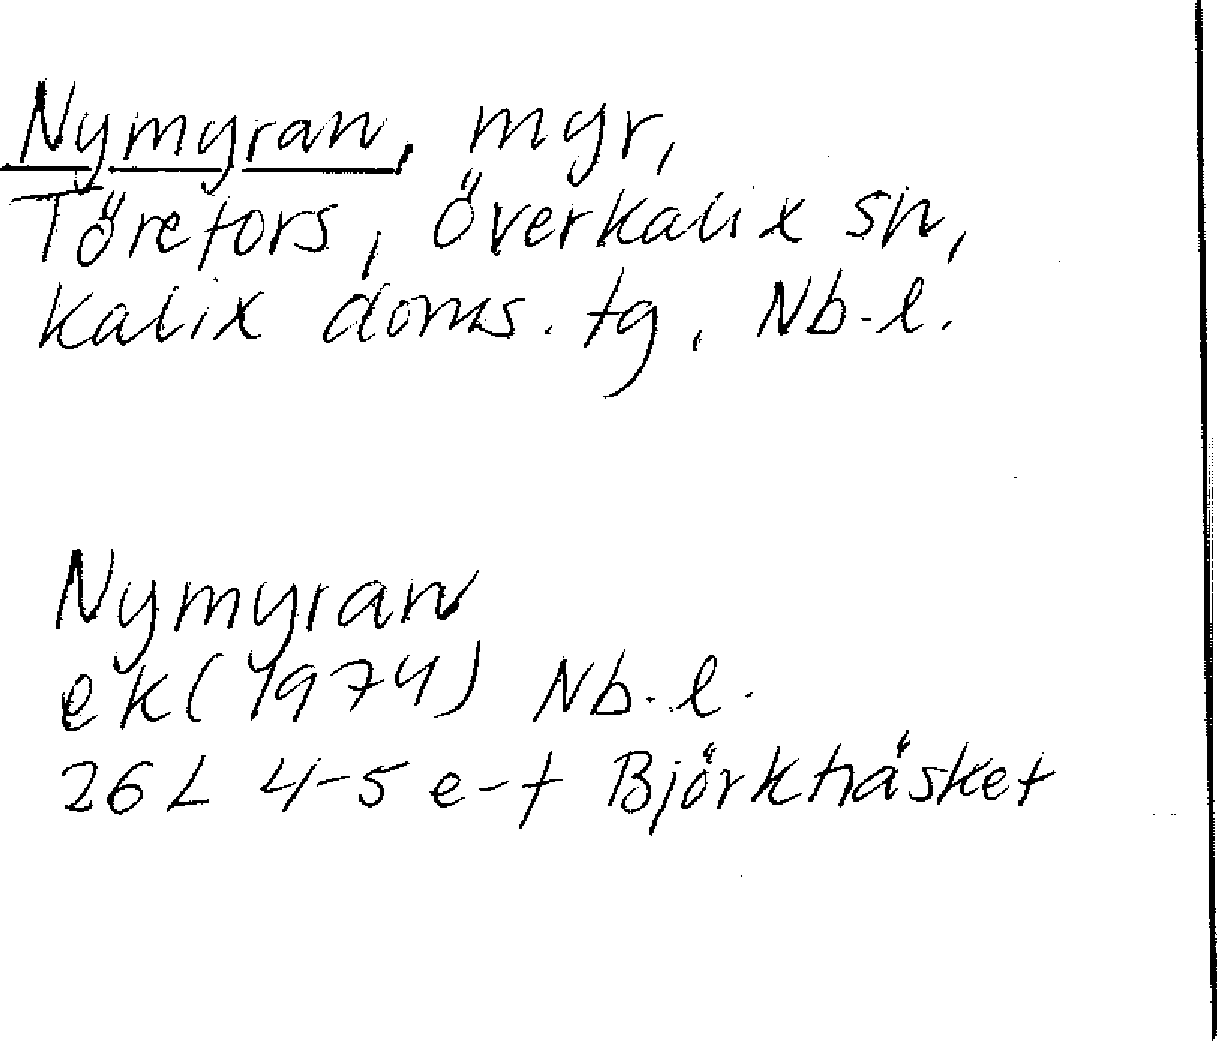 Nymyran, myr,
Törefors, Överkalix sn,
Kalix doms. tg, Nb. l.
Nymyran
ek (1974) Nb. l.
26 L 4-5 e-f Björkträsket